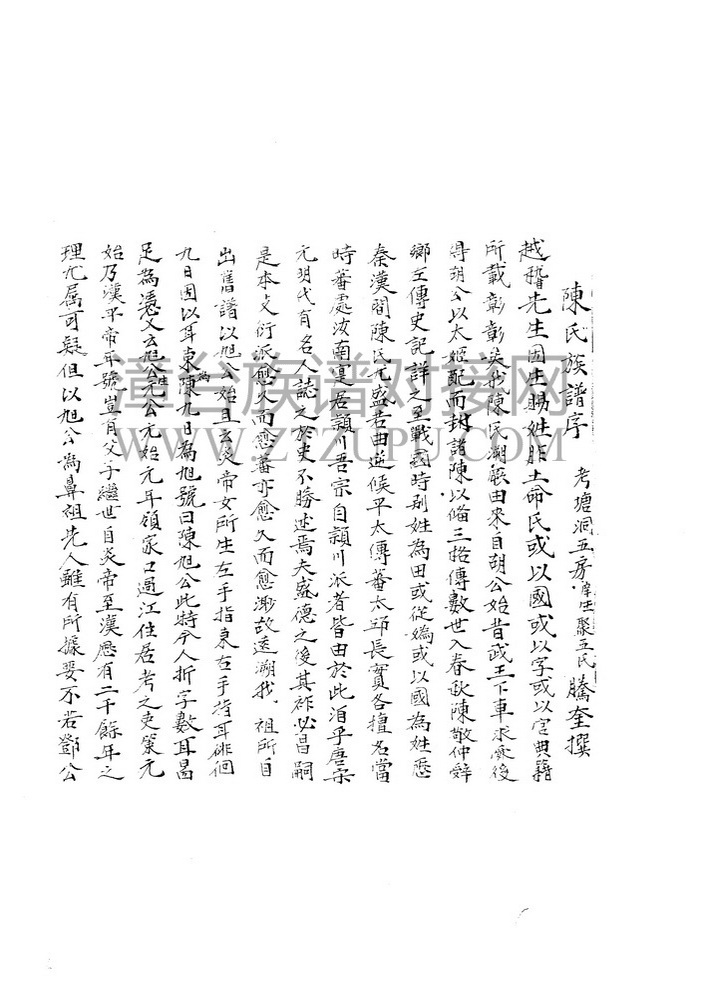 陳氏族譜序 考塘洞五房 聚五氏 騰奎撰
越稽先生因生賜姓胙土命氏或以國或以字或以官典籍
所載彰彰矣我陳氏溯厥由來自胡公始昔武王下車求虞後
得胡公以太姬配而封諸陳以備三恪傳數世入春秋陳敬仲辭
鄉左傳史記詳之至戰國時別姓為田或從媯或以國為姓悉
秦漢間陳氏尤盛若曲逆候平太傳蕃太邱長實各擅名當
時蕃處汝南寔居潁川吾宗自潁川派者皆由於此洎乎唐宋
元明代有名人誌之於史不勝述焉夫盛德之後其祚必昌嗣
是本支衍派愈久而愈蕃亦愈久而愈渺故遠溯我祖所自
出舊譜以旭公始且云炎帝女所生左手指東右手指耳徘徊
九日因以耳東為陳九日為旭號曰陳旭公此特今人折字數耳曷
足為憑又云旭公生元公元始元年領家口過江住居考之史策元
始乃漢平帝年號豈有父子繼世自炎帝至漢歷有二千餘年之
理尤屬可疑但以旭公為鼻祖先人雖有所據要不若鄧公
章台族谱对接网
WWW.ZTZUPU.COM